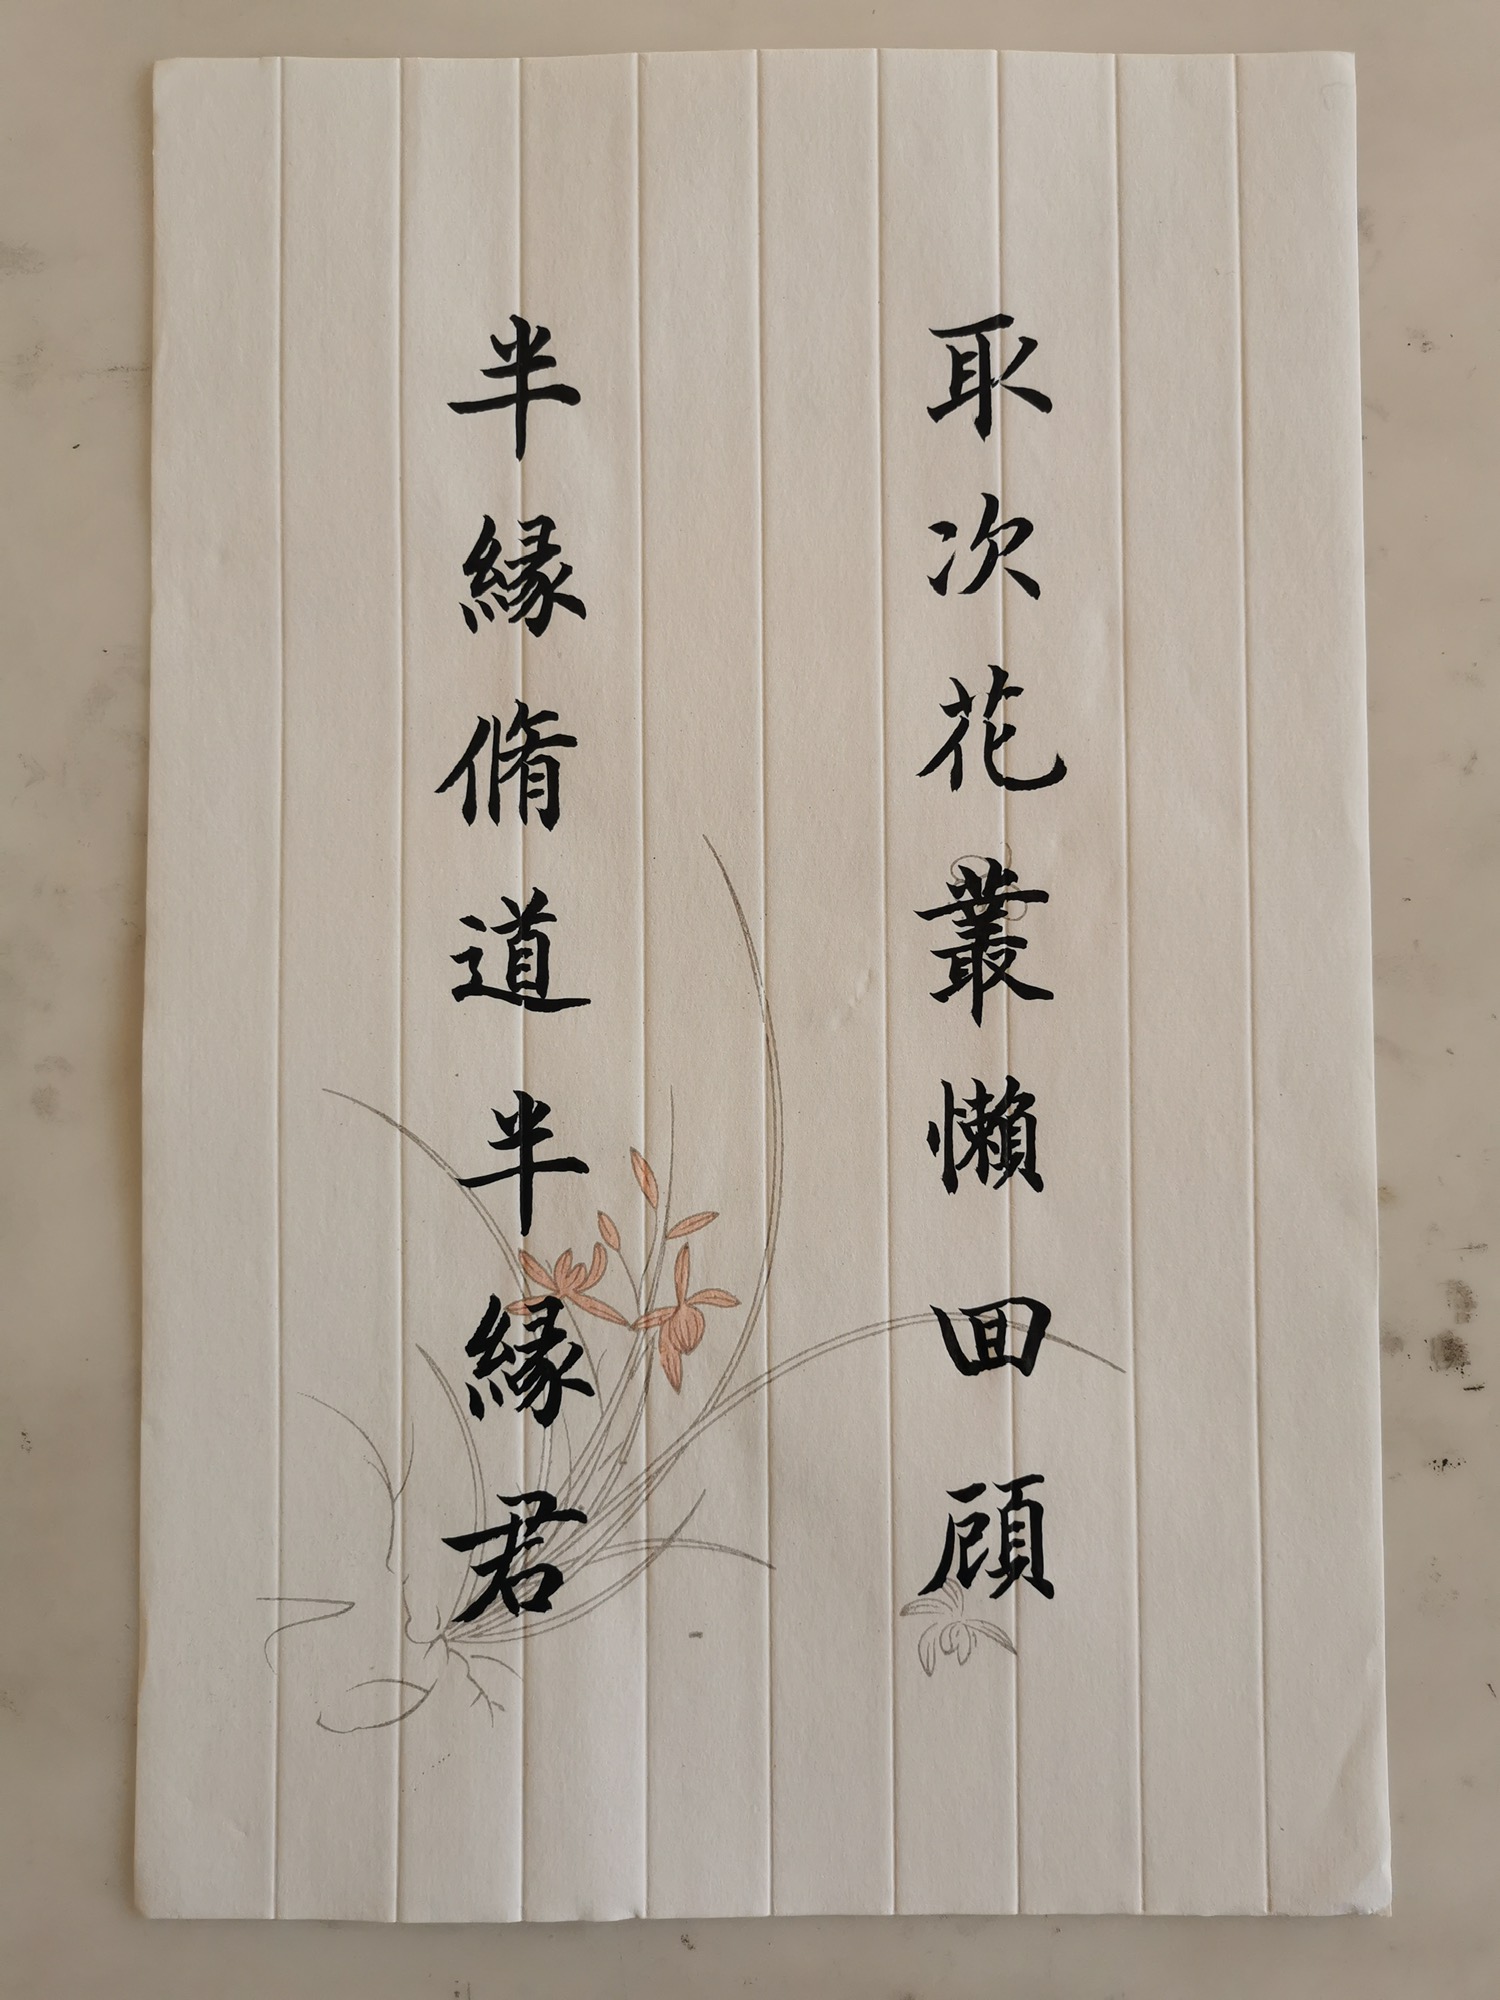 取次花叢懶回顧
半緣脩道半緣君